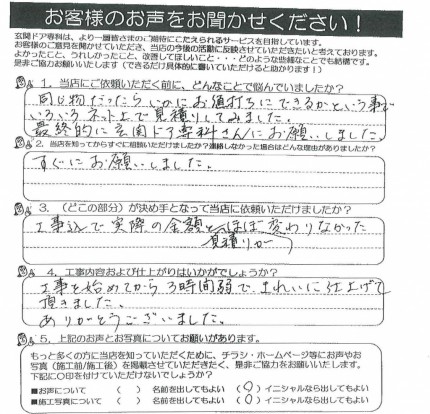 お客様のお声をお聞かせください！
玄関ドア専科は、より一層皆さまのご期待にこたえられるサービスを目指しています。
お客様のご意見を聞かせていただき、当店の今後の活動に反映させていただきたいと考えております。
よかったこと、うれしかったこと、改善してほしいこと・・・どのような些細なことでも結構です。
是非ご協力お願いいたします（できるだけ具体的に書いていただけると助かります！）
1．当店にご依頼いただく前に、どんなことで悩んでいましたか？
同じ物だったらいかにお値打ちにできるかという事で
いろいろネット上で見積りしてみました。
最終的に玄関ドア専科さんにお願いしました。
2．当店を知ってからすぐに相談いただけましたか？連絡しなかった場合はどんな理由がありましたか？
すぐにお願いしました。
3．（どこの部分）が決め手となって当店に依頼いただけましたか？
工事込で実際の金額とほぼ変わりなかった
見積りが
4．工事内容および仕上がりはいかがでしょうか？
工事を始めてから3時間弱で、きれいに仕上げて
頂きました。
ありがとうございました。
5．上記のお声とお写真についてお願いがあります。
もっと多くの方に当店を知っていただくために、チラシ・ホームページ等にお声やお
写真（施工前/施工後）を掲載させていただきたく、是非ご協力をお願いいたします。
下記に〇印を付けていただけないでしょうか？
■お声について （ ） 名前を出してもよい （〇） イニシャルなら出してもよい
■施工写真について （ ） 名前を出してもよい （〇） イニシャルなら出してもよい